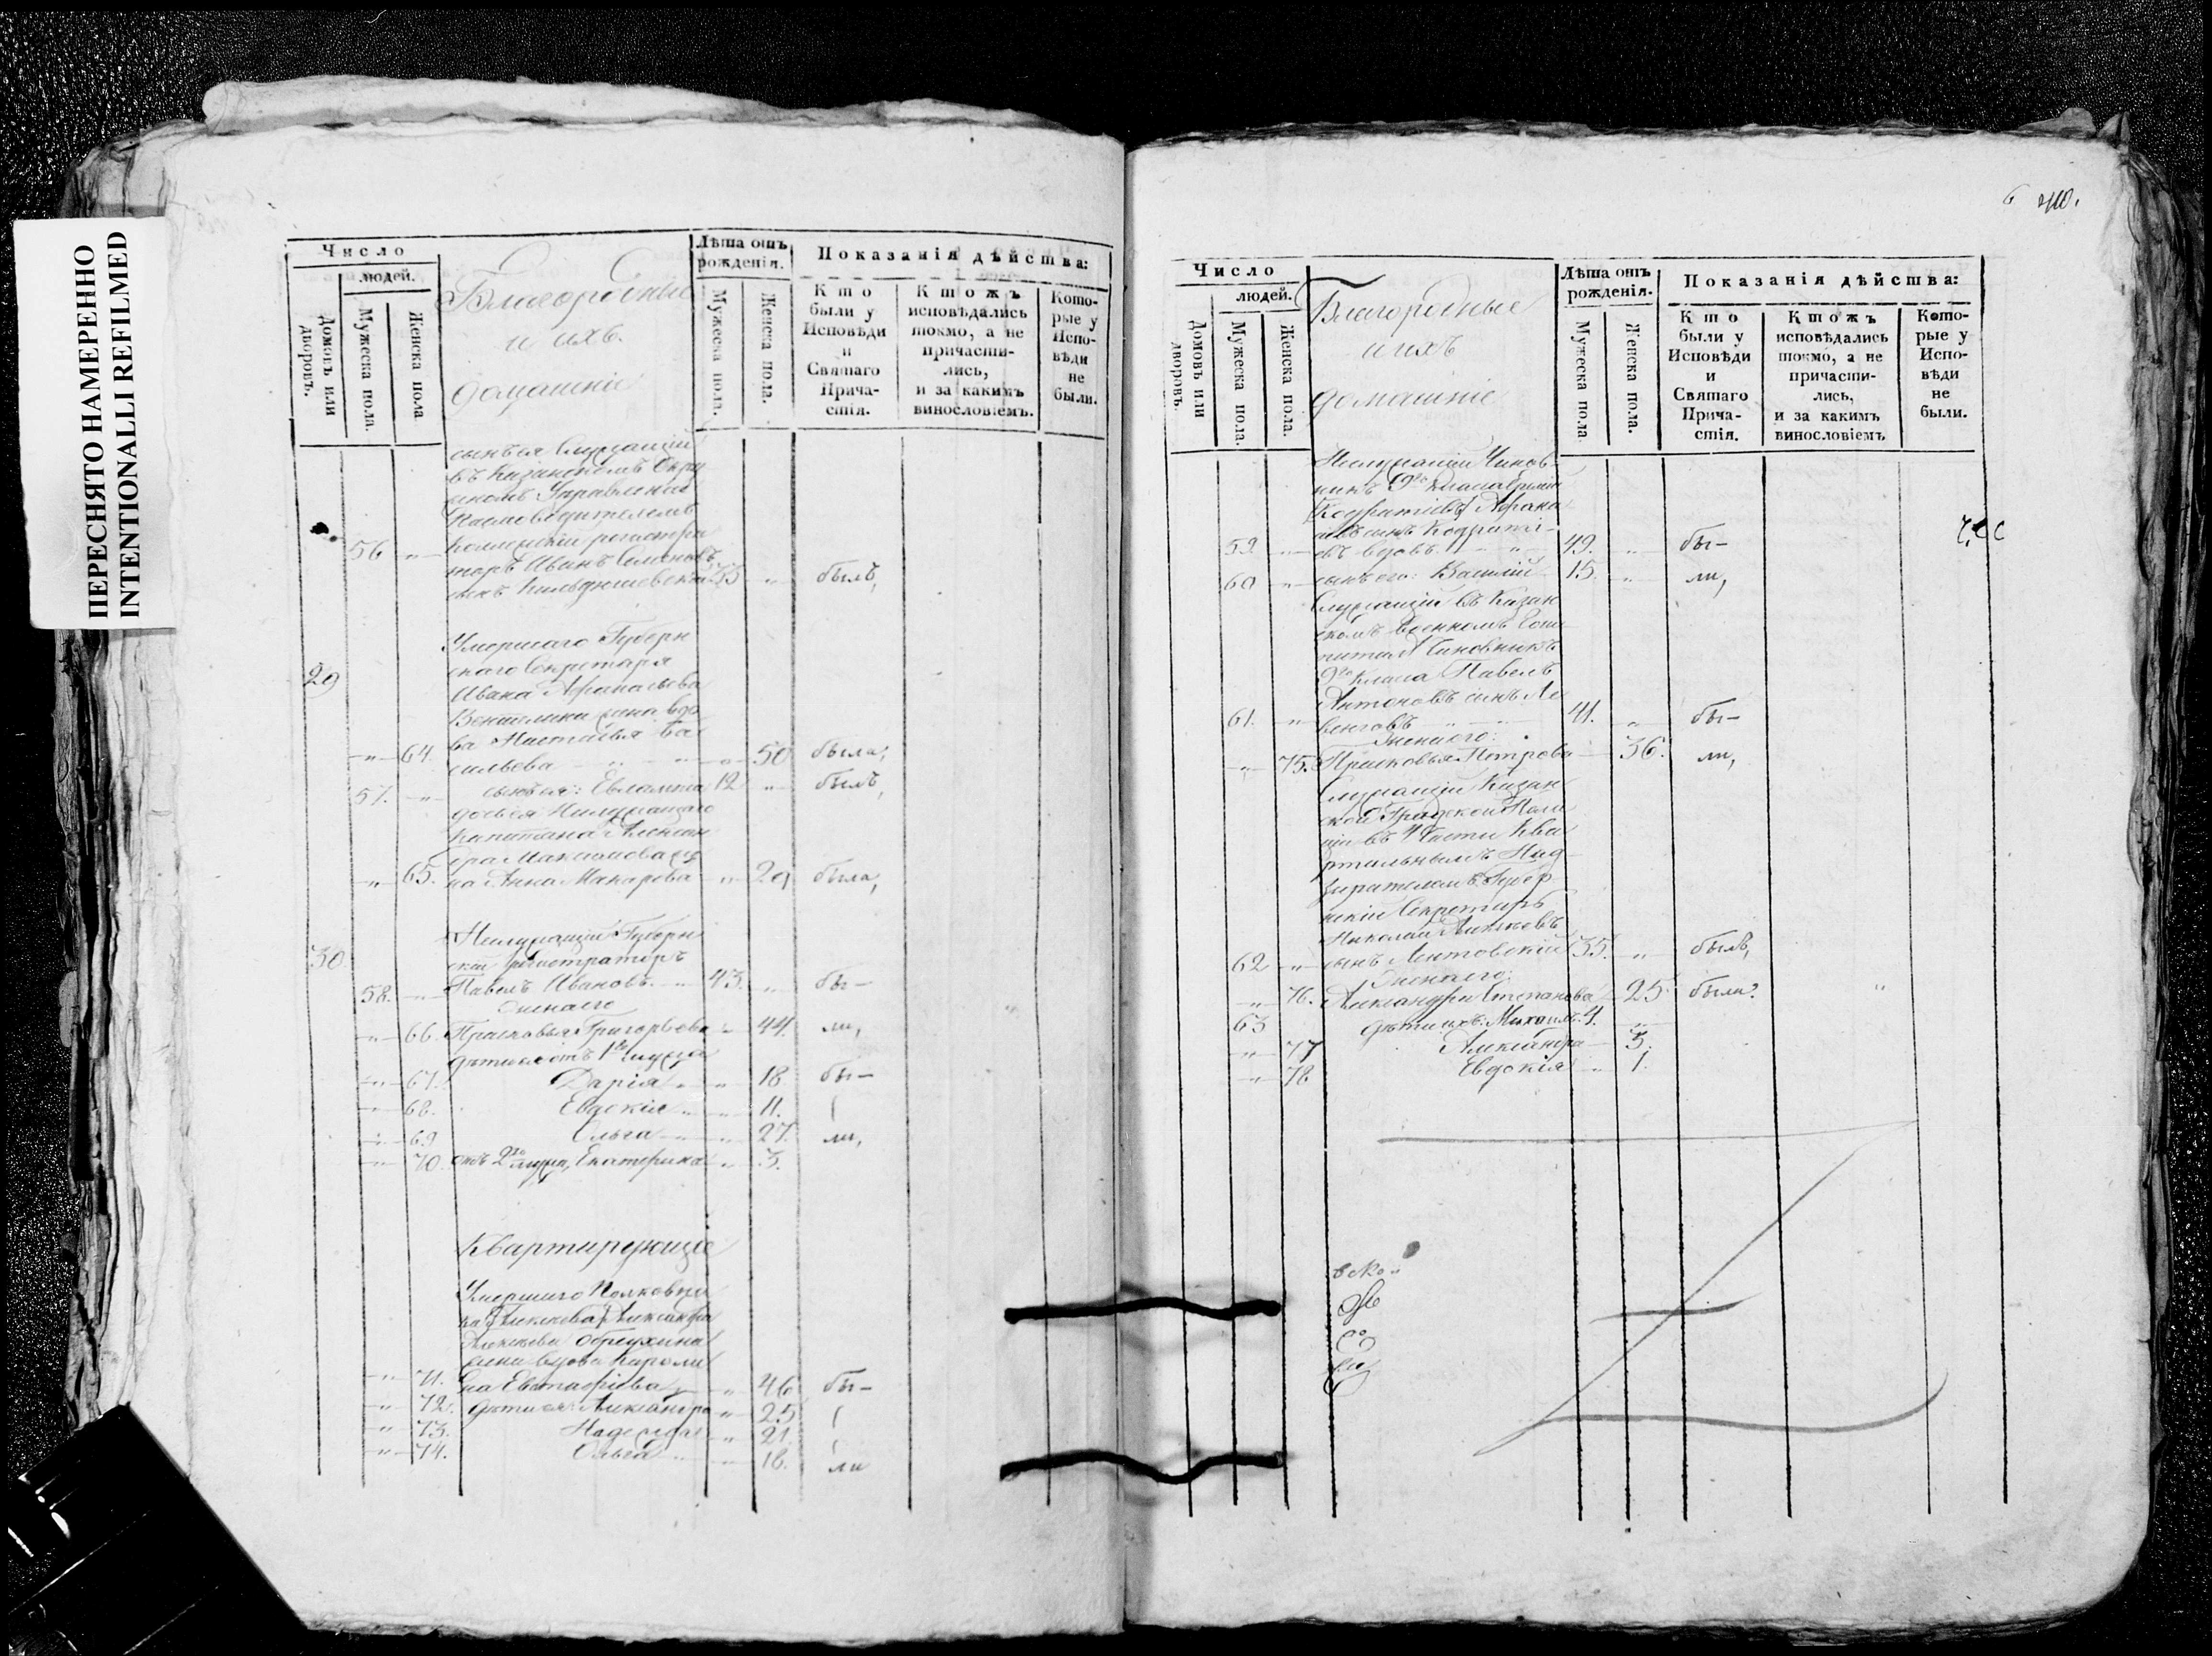 ПЕРЕСНЯТО НАМЕРЕННО
INTENTIONALLI REFILMED
Число
людей.
Домовъ или дворовъ.
Мужеска пола.
Женска пола
Благородные
и ихъ
домашніе
Лѣта отъ рожденія.
Мужеска пола.
Женска пола.
Показанія дѣйства:
Кто были у Исповѣди и Святаго Причастія.
Кто жъ исповѣдались токмо, а не причастились, и за какимъ винословіемъ.
Которые у Исповѣди не были.
сынъ ея Служащій
въ Казанскомъ Окру
жномъ Управленіи
Письмоводителемъ
Коллежскій регистра
56 " торъ Иванъ Семеновъ
сынъ " былъ,
Умершаго Губерн
29 скаго Секретаря
Ивана Афанасьева
сына вдо
ва Настасья Ва
" 64 сильева " 50 была,
57. " сынъ ея: Евлампій 12 " былъ,
дочь ея Неслужащаго
Капитана Алексан
дра Максимова же
" 65. на Анна Макарова " 29 была,
Неслужащій Губерн
30 скій регистраторъ
58. " Павелъ Ивановъ " 43. " бы-
Жена его
" 66. Прасковья Григорьева " 44. ли,
дѣти ея отъ 1го мужа
" 67. Дарія " 18. бы-
" 68. Евдокія " 11.
" 69 Ольга " 27. ли,
" 70. отъ 2го мужа, Екатерина " 3.
Квартирующіе
Умершаго Полковни
ка Александра
Алексѣева
сына вдова Кароли
" 71. на Евстафіева " 46 бы-
" 72. дѣти ея: Александра " 25
" 73. Надежда " 21
" 74. Ольга " 18. ли
6 40.
Число
людей.
Домовъ или дворовъ.
Мужеска пола.
Женска пола.
Благородные
и ихъ
домашніе
Лѣта отъ рожденія.
Мужеска пола
Женска пола.
Показанія дѣйства:
Кто были у Исповѣди и Святаго Причастія.
Кто жъ исповѣдались токмо, а не причастились, и за какимъ винословіемъ
Которые у Исповѣди не были.
Неслужащій Чинов
никъ 9го класса
Афана
сынъ Кодраті-
59. " въ вдовъ " 49. " бы-
60 " сынъ его: Василій 15. " ли,
Служащій въ Казан
скомъ Военномъ Гош
питалѣ Чиновникъ
9го класса Павелъ
Антоновъ сынъ Ле
61. " " 41. " бы-
Жена его:
" 75. Прасковья Петрова 36. ли,
Служащій Казан
ской Градской Поли
ціи въ 4 Части Ква
ртальнымъ Над
зирателемъ Губер
нскій Секретарь
Николай
62 " сынъ Лентовскій 35. " былъ,
Жена его:
" 76. Александра Степанова 25. была.
63 дѣти ихъ: Михаилъ 4.
" 77 Александра 3.
" 78 Евдокія " 1.